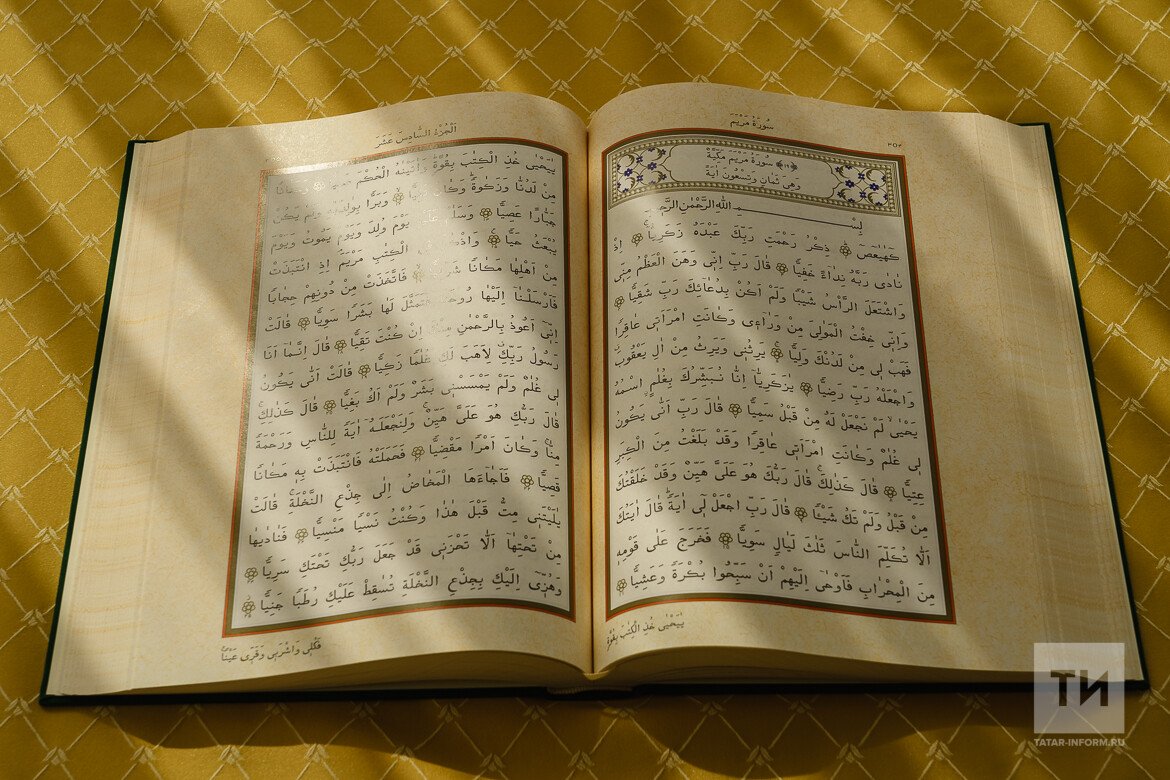 سُورَةُ مَرْيَمَ
٣٠٤
﴿١٩﴾ سُورَةُ مَرْيَمَ مَكِّيَّةٌ
وَهِىَ ثَمَانٍ وَتِسْعُونَ اٰيَةً
بِسْمِ اللهِ الرَّحْمٰنِ الرَّحٖيمِ
كٓهٰيٰعٓصٓ ذِكْرُ رَحْمَتِ رَبِّكَ عَبْدَهُ زَكَرِيَّا اِذْ
نَادٰى رَبَّهُ نِدَٓاءً خَفِيًّا قَالَ رَبِّ اِنّٖى وَهَنَ الْعَظْمُ مِنّٖى
وَاشْتَعَلَ الرَّأْسُ شَيْبًا وَلَمْ اَكُنْ بِدُعَٓائِكَ رَبِّ شَقِيًّا
وَاِنّٖى خِفْتُ الْمَوَالِىَ مِنْ وَرَٓاءٖى وَكَانَتِ امْرَاَتٖى عَاقِرًا
فَهَبْ لٖى مِنْ لَدُنْكَ وَلِيًّا يَرِثُنٖى وَيَرِثُ مِنْ اٰلِ يَعْقُوبَ
وَاجْعَلْهُ رَبِّ رَضِيًّا يَا زَكَرِيَّٓا اِنَّا نُبَشِّرُكَ بِغُلَامٍ اسْمُهُ
يَحْيٰى لَمْ نَجْعَلْ لَهُ مِنْ قَبْلُ سَمِيًّا قَالَ رَبِّ اَنّٰى يَكُونُ
لٖى غُلَامٌ وَكَانَتِ امْرَاَتٖى عَاقِرًا وَقَدْ بَلَغْتُ مِنَ الْكِبَرِ
عِتِيًّا قَالَ كَذٰلِكَ قَالَ رَبُّكَ هُوَ عَلَىَّ هَيِّنٌ وَقَدْ خَلَقْتُكَ
مِنْ قَبْلُ وَلَمْ تَكُ شَيْئًا قَالَ رَبِّ اجْعَلْ لٖٓى اٰيَةً قَالَ اٰيَتُكَ
اَلَّا تُكَلِّمَ النَّاسَ ثَلٰثَ لَيَالٍ سَوِيًّا فَخَرَجَ عَلٰى قَوْمِهٖ
مِنَ الْمِحْرَابِ فَاَوْحٰٓى اِلَيْهِمْ اَنْ سَبِّحُوا بُكْرَةً وَعَشِيًّا
يَا يَحْيٰى خُذِ الْكِتَابَ بِقُوَّةٍ
اَلْجُزْءُ السَّادِسَ عَشَرَ
يَا يَحْيٰى خُذِ الْكِتَابَ بِقُوَّةٍ وَاٰتَيْنَاهُ الْحُكْمَ صَبِيًّا وَحَنَانًا
مِنْ لَدُنَّا وَزَكٰوةً وَكَانَ تَقِيًّا وَبَرًّا بِوَالِدَيْهِ وَلَمْ يَكُنْ
جَبَّارًا عَصِيًّا وَسَلَامٌ عَلَيْهِ يَوْمَ وُلِدَ وَيَوْمَ يَمُوتُ وَيَوْمَ
يُبْعَثُ حَيًّا وَاذْكُرْ فِى الْكِتَابِ مَرْيَمَ اِذِ انْتَبَذَتْ
مِنْ اَهْلِهَا مَكَانًا شَرْقِيًّا فَاتَّخَذَتْ مِنْ دُونِهِمْ حِجَابًا
فَاَرْسَلْنَٓا اِلَيْهَا رُوحَنَا فَتَمَثَّلَ لَهَا بَشَرًا سَوِيًّا قَالَتْ
اِنّٖٓى اَعُوذُ بِالرَّحْمٰنِ مِنْكَ اِنْ كُنْتَ تَقِيًّا قَالَ اِنَّمَٓا اَنَا
رَسُولُ رَبِّكِ لِاَهَبَ لَكِ غُلَامًا زَكِيًّا قَالَتْ اَنّٰى يَكُونُ
لٖى غُلَامٌ وَلَمْ يَمْسَسْنٖى بَشَرٌ وَلَمْ اَكُ بَغِيًّا قَالَ كَذٰلِكِ
قَالَ رَبُّكِ هُوَ عَلَىَّ هَيِّنٌ وَلِنَجْعَلَهُٓ اٰيَةً لِلنَّاسِ وَرَحْمَةً
مِنَّا وَكَانَ اَمْرًا مَقْضِيًّا فَحَمَلَتْهُ فَانْتَبَذَتْ بِهٖ مَكَانًا
قَصِيًّا فَاَجَٓاءَهَا الْمَخَاضُ اِلٰى جِذْعِ النَّخْلَةِ قَالَتْ
يَا لَيْتَنٖى مِتُّ قَبْلَ هٰذَا وَكُنْتُ نَسْيًا مَنْسِيًّا فَنَادٰيهَا
مِنْ تَحْتِهَٓا اَلَّا تَحْزَنٖى قَدْ جَعَلَ رَبُّكِ تَحْتَكِ سَرِيًّا
وَهُزّٖٓى اِلَيْكِ بِجِذْعِ النَّخْلَةِ تُسَاقِطْ عَلَيْكِ رُطَبًا جَنِيًّا
فَكُلٖى وَاشْرَبٖى وَقَرّٖى عَيْنًا
ТИ
TATAR-INFORM.RU